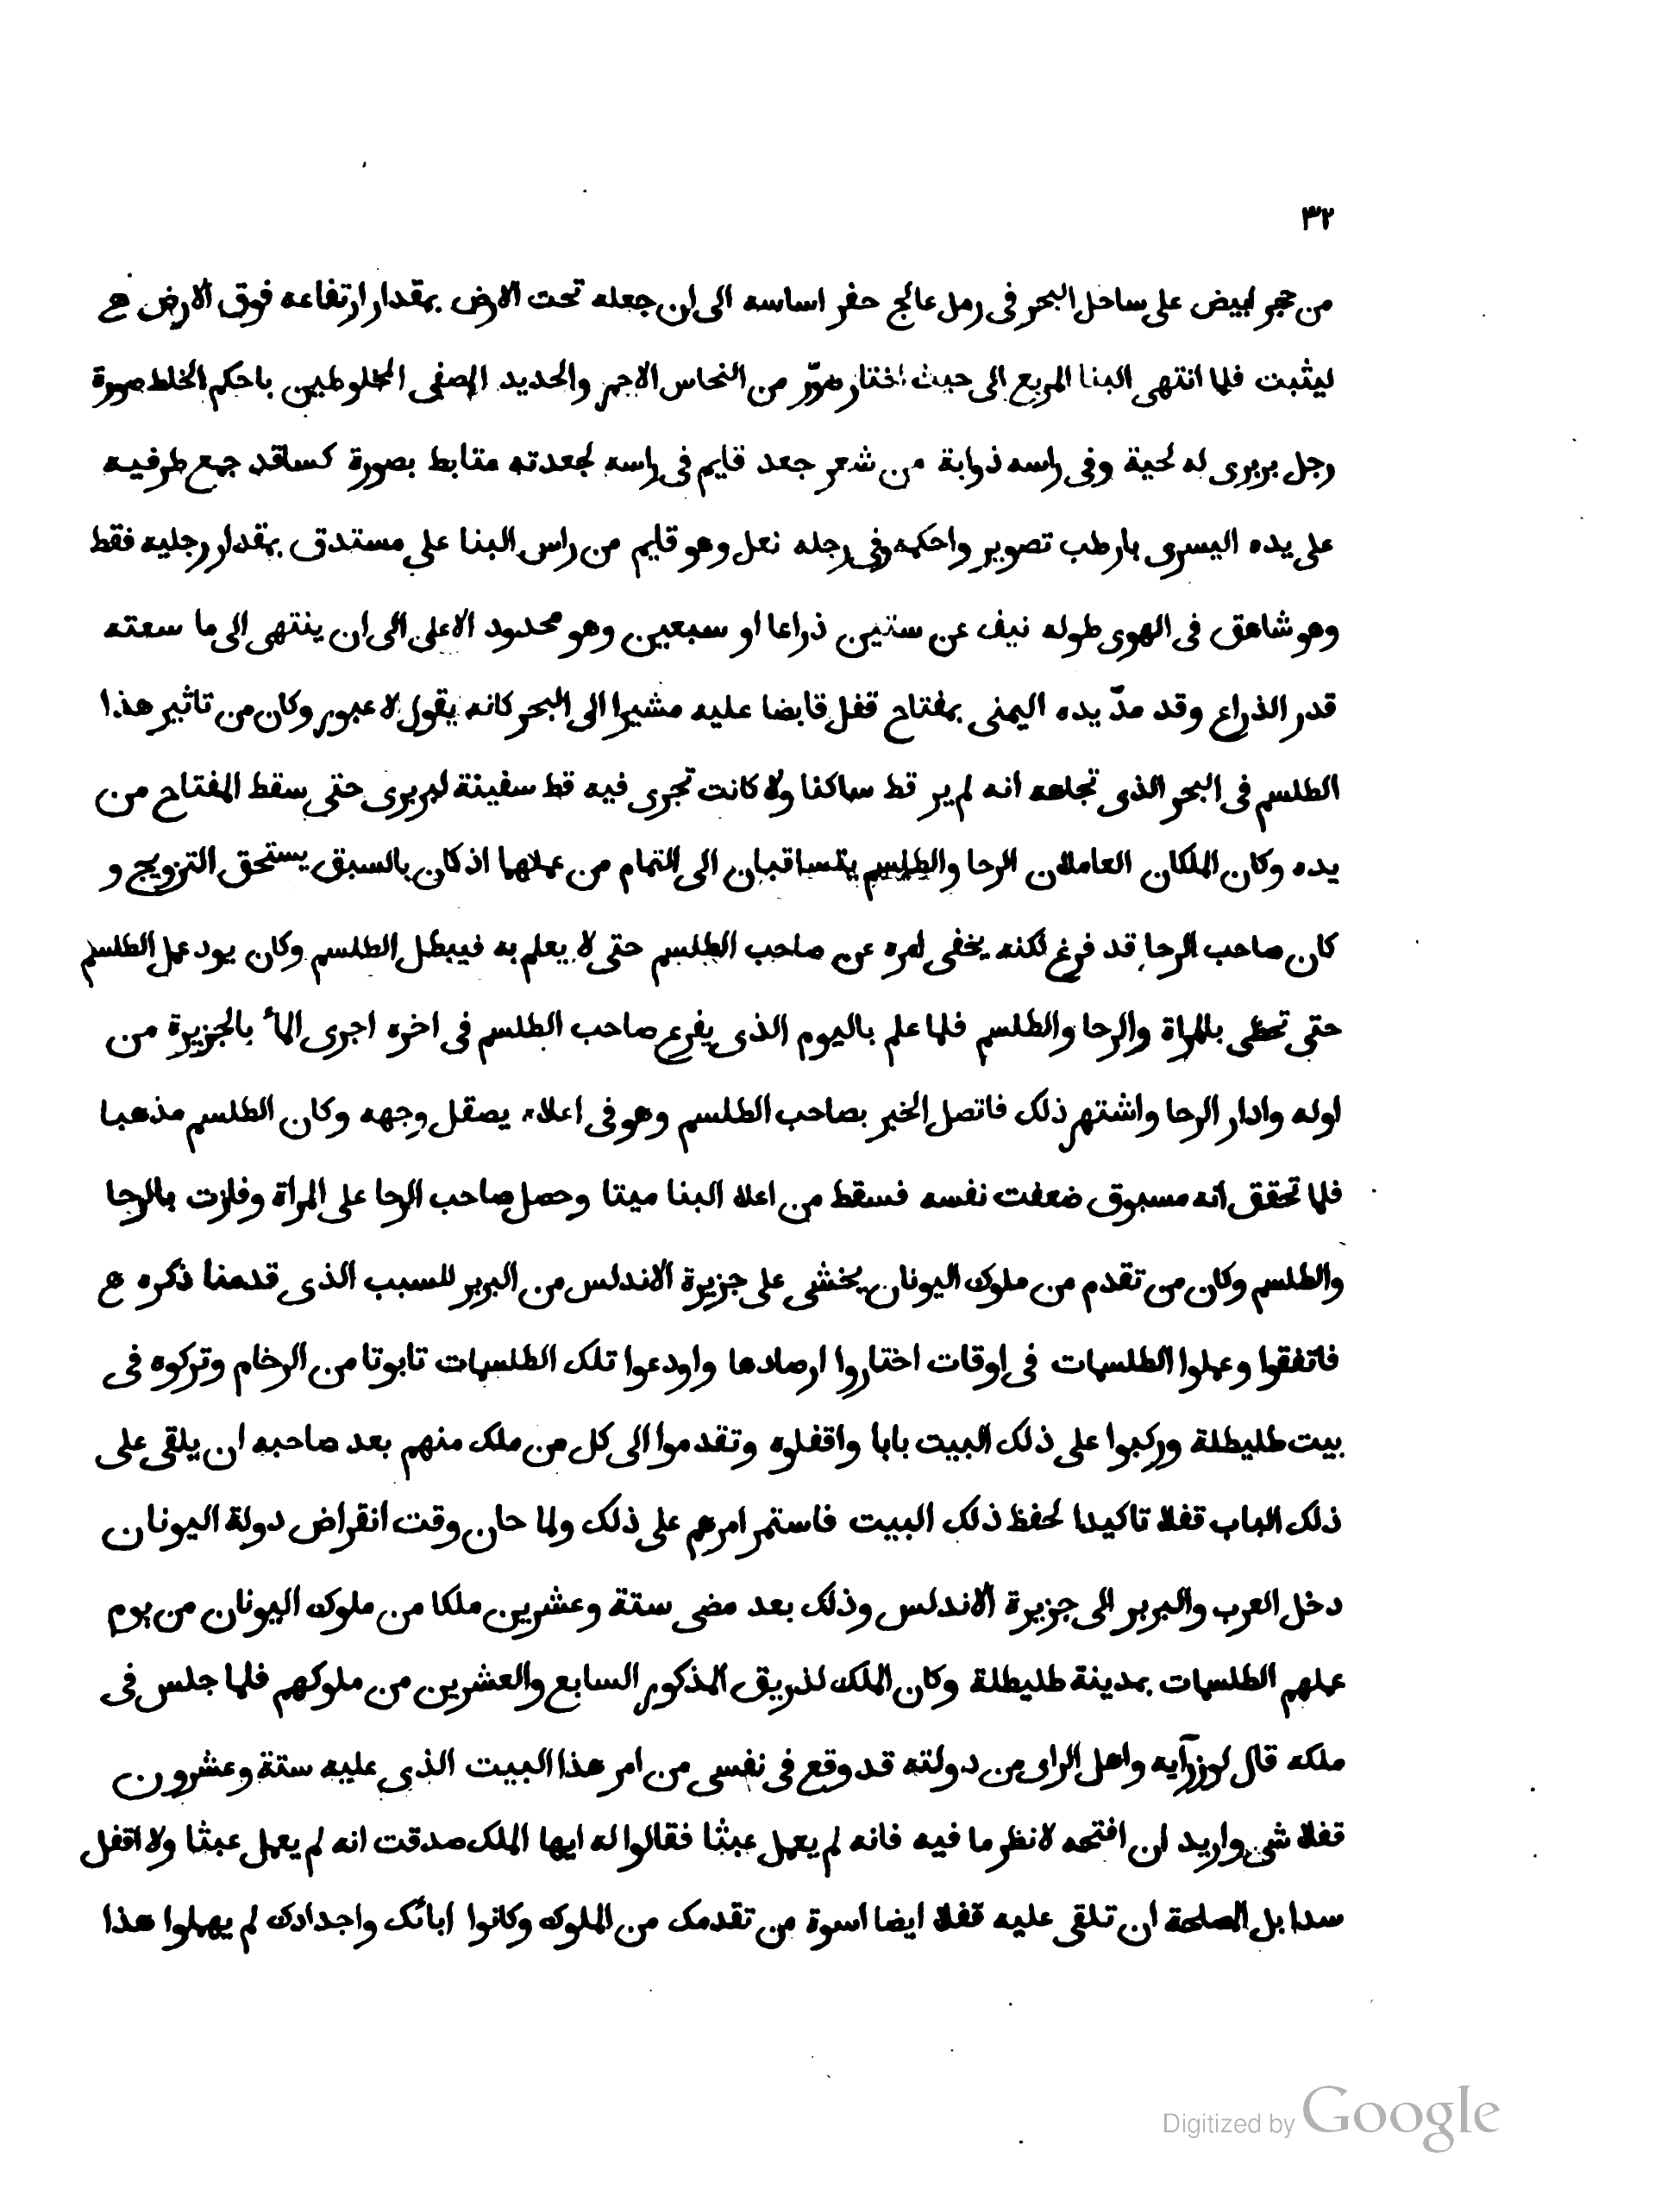 ٣٢
من حجر ابيض على ساحل البحر فى رمل عالج حفر اساسه الى ان جعله تحت الارض بمقدار ارتفاعه فوق الارض ھ
ليثبت فلما انتهى البنا المربع الى حيث اختار صوّر من النحاس الاحمر والحديد المصفى المخلوطين باحكم الخلط صورة
رجل بربرى له لحية وفى راسه ذوابة من شعر جعد قايم فى راسه لجعدته متابط بصورة كساقد جمع طرفيه
على يده اليسرى بارطب تصوير واحكمه وفى رجله نعل وهو قايم من راس البنا على مستدق بمقدار رجليه فقط
وهو شاهق فى الهوى طوله نيف عن ستين ذراعا او سبعين وهو محدود الاعلى الى ان ينتهى الى ما سعته
قدر الذراع وقد مدّ يده اليمنى بمفتاح قفل قابضا عليه مشيرا الى البحر كانه يقول لا عبور وكان من تاثير هذا
الطلسم فى البحر الذى تجاهه انه لم ير قط ساكنا ولا كانت تجرى فيه قط سفينة لبربرى حتى سقط المفتاح من
يده وكان الملكان العاملان الرحا والطلسم يتساقبان الى التمام من عملها اذ كان بالسبق يستحق التزويج و
كان صاحب الرحا قد فرغ لكنه يخفى امره عن صاحب الطلسم حتى لا يعلم به فيبطل الطلسم وكان يود عمل الطلسم
حتى تحظى بالمراة والرحا والطلسم فلما علم باليوم الذى يفرع صاحب الطلسم فى اخره اجرى المأ بالجزيرة من
اوله وادار الرحا واشتهر ذلك فاتصل الخبر بصاحب الطلسم وهو فى اعلاه يصقل وجهه وكان الطلسم مذهبا
فلما تحقق انه مسبوق ضعفت نفسه فسقط من اعلا البنا ميتا وحصل صاحب الرحا على المراة وفازت بالرحا
والطلسم وكان من تقدم من ملوك اليونان يخشى على جزيرة الاندلس من البربر للسبب الذى قدمنا ذكره ھ
فاتفقوا وعملوا الطلسمات فى اوقات اختاروا ارصادها واودعوا تلك الطلسمات تابوتا من الرخام وتركوه فى
بيت طليطلة وركبوا على ذلك البيت بابا واقفلوه وتقدموا الى كل من ملك منهم بعد صاحبه ان يلقى على
ذلك الباب قفلا تاكيدا لحفظ ذلك البيت فاستمر امرهم على ذلك ولما حان وقت انقراض دولة اليونان
دخل العرب والبربر الى جزيرة الاندلس وذلك بعد مضى ستة وعشرين ملكا من ملوك اليونان من يوم
عملهم الطلسمات بمدينة طليطلة وكان الملك لذريق المذكور السابع والعشرين من ملوكهم فلما جلس فى
ملكه قال لوزرآيه واهل الراى من دولته قد وقع فى نفسى من امر هذا البيت الذى عليه ستة وعشرون
قفلا شى واريد ان افتحه لانظر ما فيه فانه لم يعمل عبثا فقالوا له ايها الملك صدقت انه لم يعمل عبثا ولا اقفل
سدا بل المصلحة ان تلقى عليه قفلا ايضا اسوة من تقدمك من الملوك وكانوا ابائك واجدادك لم يهملوا هذا
Digitized by Google